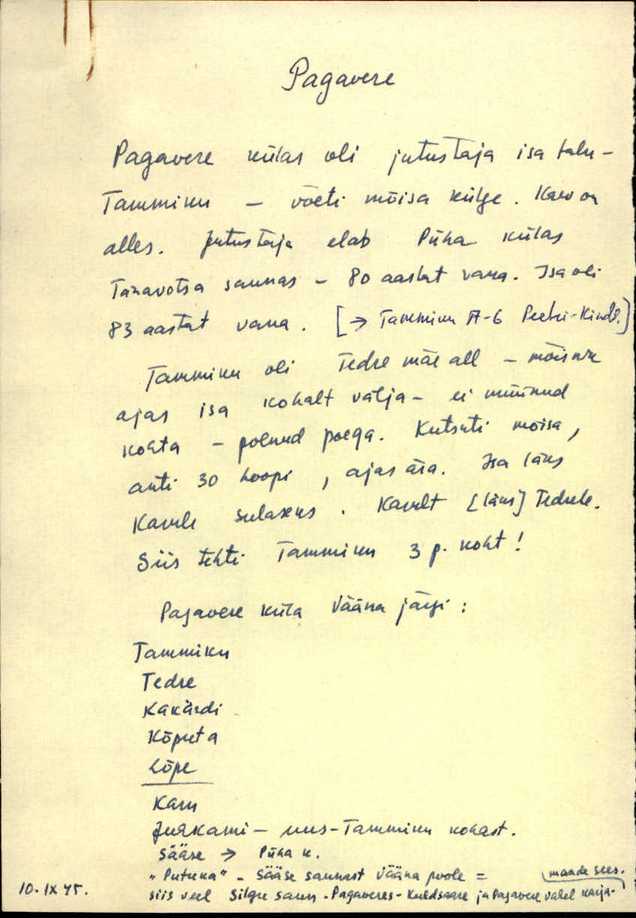 Pagavere
Pagavere külas oli jutustaja isa talu –
Tammiku – võeti mõisa külge. Kaev on
alles. Jutustaja elab Püha külas
Tanavotsa saunas – 80 aastat vana. Isa oli
83 aastat vana. [→ Tammiku A-6 Peetri-
Tammiku oli Tedre mäe all – mõisnik
ajas isa kohalt välja – ei müünud
kohta – polnud poega. Kutsuti mõisa,
anti 30 hoopi, ajas ära. Isa läks
sulaseks. [läks] Tedrele.
Siis tehti Tammiku 3 p. koht!
Pagavere küla Vääna järgi:
Tammiku
Tedre
Kakärdi
Kõputa
Lõpe
Karu
Jurkami – uus-Tammiku kohast.
Sääse → Püha k.
"Putuka" – Sääse saunast Vääna poole =
siis veel Silgu saun – Pagaveres – Kuldsaare ja Pagavere vahel karja-
maade sees.
10. IX 45.